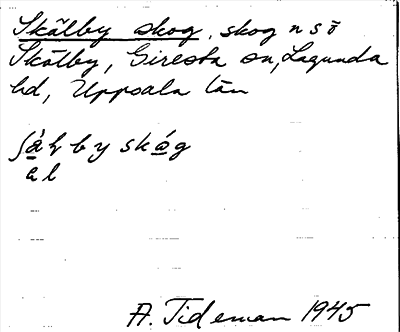 Skälby skog, skog n s ö
Skälby, Giresta sn, Lagunda
hd, Uppsala län
by skóg
a l
A. Tideman 1945